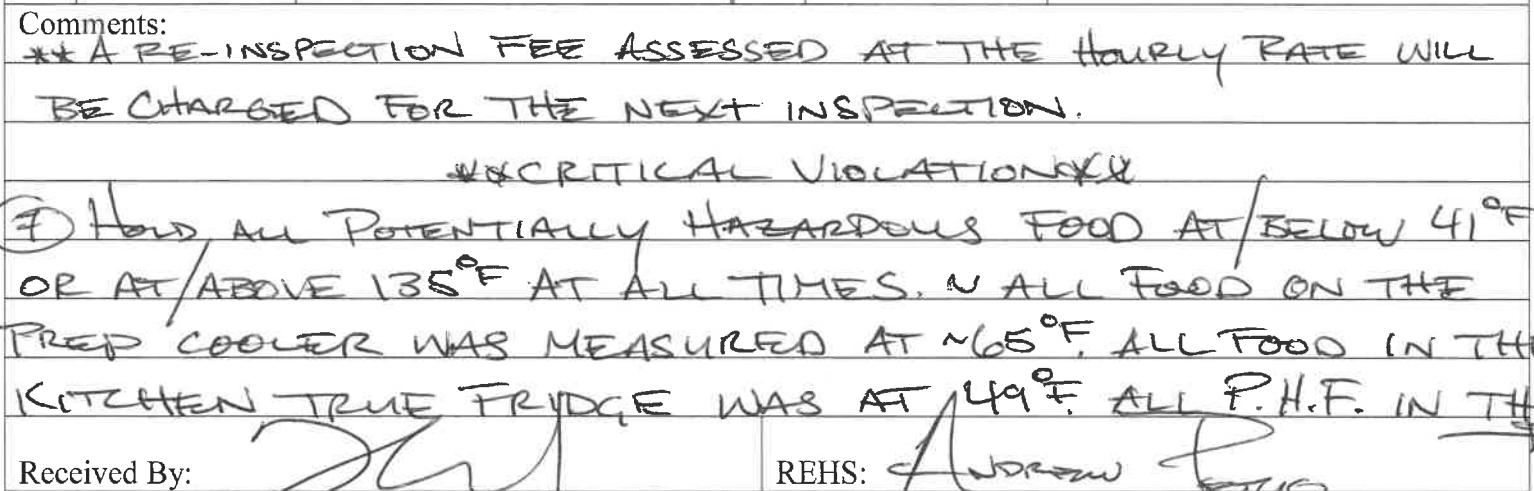 Comments:
** A RE-INSPECTION FEE ASSESSED AT THE HOURLY RATE WILL
BE CHARGED FOR THE NEXT INSPECTION.
**CRITICAL VIOLATION**
7 HOLD ALL POTENTIALLY HAZARDOUS FOOD AT/BELOW 41°F
OR AT/ABOVE 135°F AT ALL TIMES. ~ ALL FOOD ON THE
PREP COOLER WAS MEASURED AT ~65°F. ALL FOOD IN TH
KITCHEN TRUE FRIDGE WAS AT 49°F. ALL P.H.F. IN TH
Received By: REHS: ANDREW